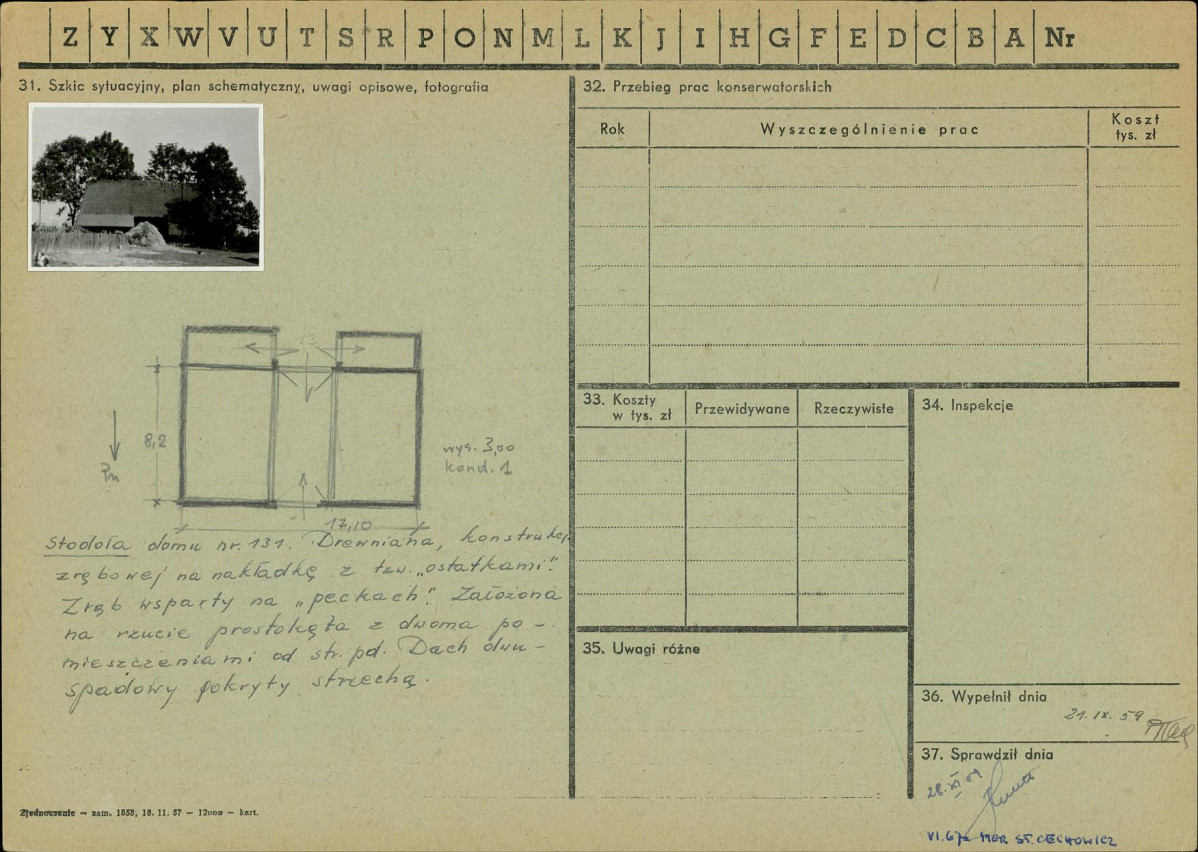 Z Y X W V U T S R P O N M L K J I H G F E D C B A Nr
31. Szkic sytuacyjny, plan schematyczny, uwagi opisowe, fotografia
13
8,2
Pn
wys. 3,00
kond. 1
17,10
Stodoła domu nr. 131. Drewniana, konstrukcj.
zrębowej na nakładkę z tzw. „ostatkami".
Zrąb wsparty na „peckach". Założona
na rzucie prostokąta z dwoma po-
mieszczeniami od str. pd. Dach dwu-
spadowy pokryty strzechą.
Zjednoczenie — zam. 1658, 18. 11. 57 — 12000 — kart.
32. Przebieg prac konserwatorskich
Rok
Wyszczególnienie prac
Koszt
tys. zł
33. Koszty
w tys. zł
Przewidywane
Rzeczywiste
34. Inspekcje
35. Uwagi różne
36. Wypełnił dnia
21. IX. 59
37. Sprawdził dnia
28. XI 59
VI. 67 MGR ST. CECHOWICZ